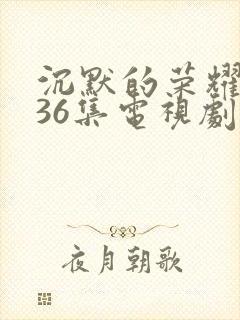 沉默的荣耀
36集電視劇
夜月朝歌